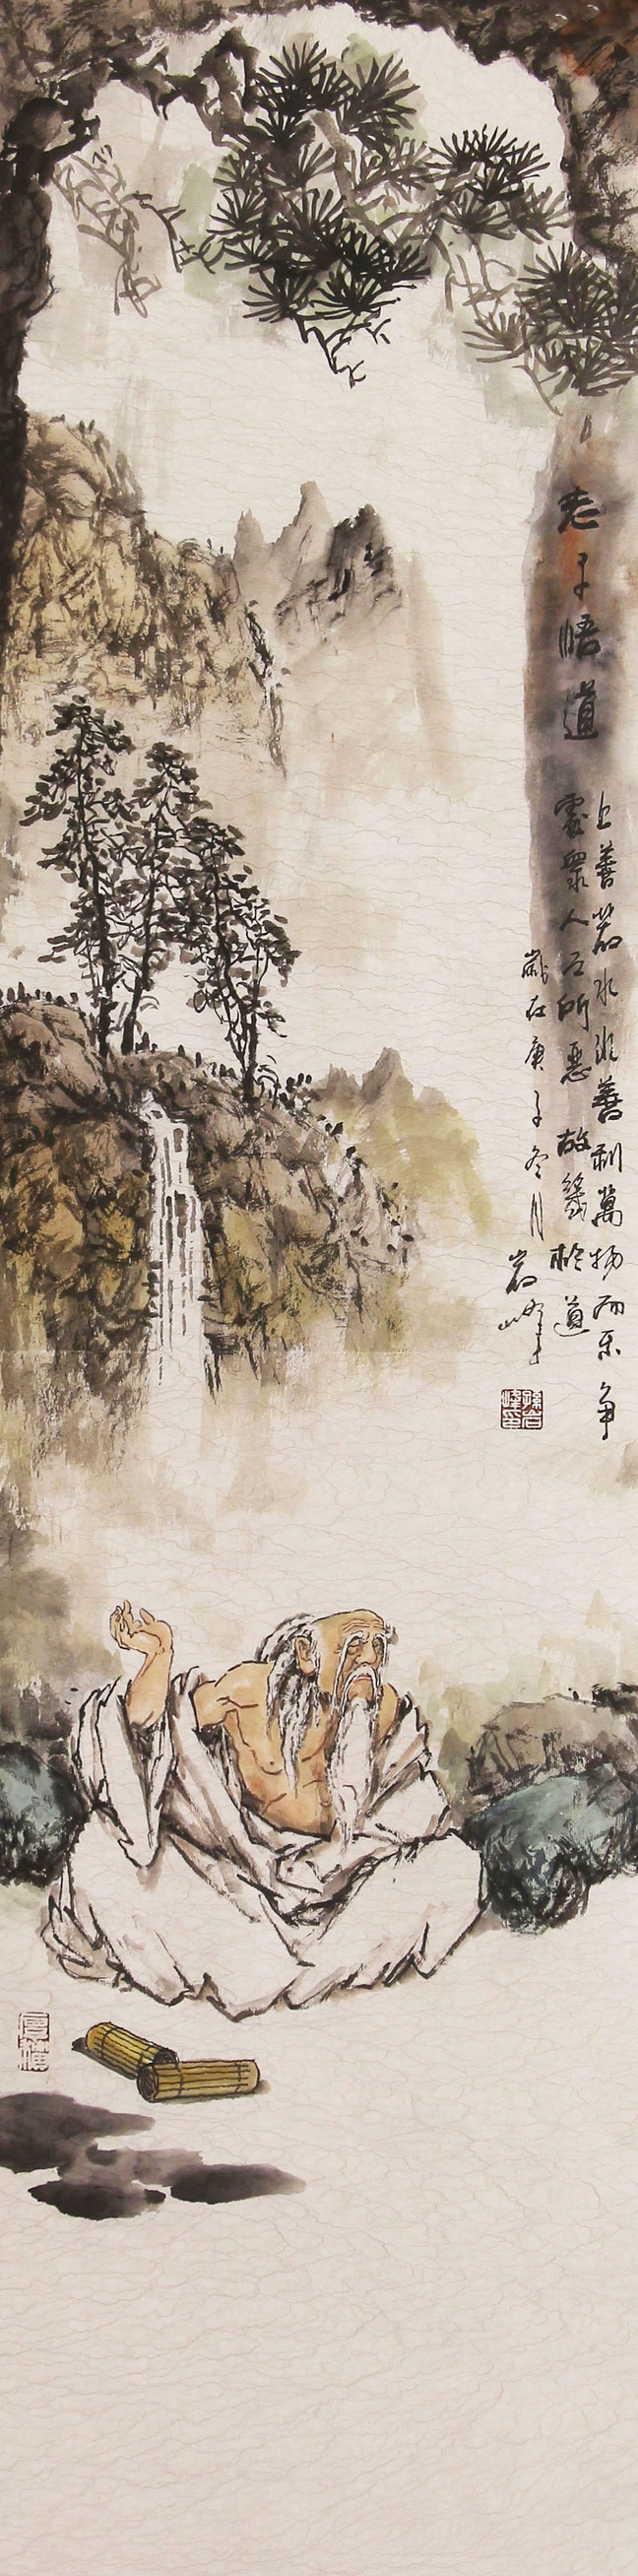 老子悟道
上善若水水善利萬物而不争
處衆人之所惡故幾於道
歲在庚子冬月
岩峰